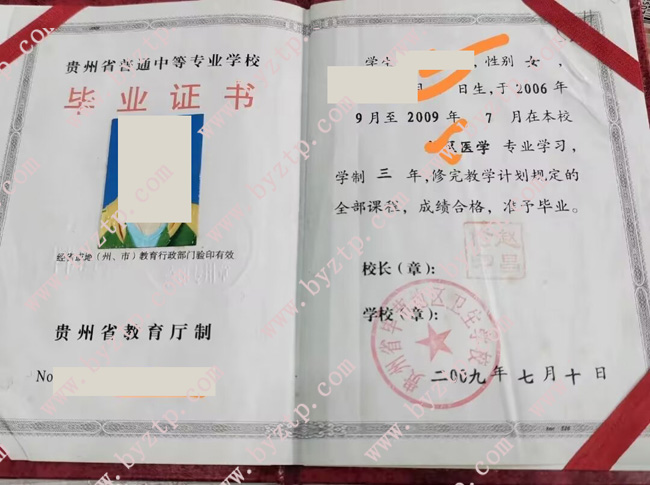 贵州省普通中等专业学校
毕业证书
经 地(州、市)教育行政部门验印有效
贵州省教育厅制
No
学生 ,性别 女 ,
日生,于 2006 年
9 月至 2009 年 7 月在本校
医学 专业学习,
学制 三 年,修完教学计划规定的
全部课程,成绩合格,准予毕业。
校长(章):
学校(章):
贵州省毕节地区卫生学校
二00九年 七 月 十 日
www.byztp.com